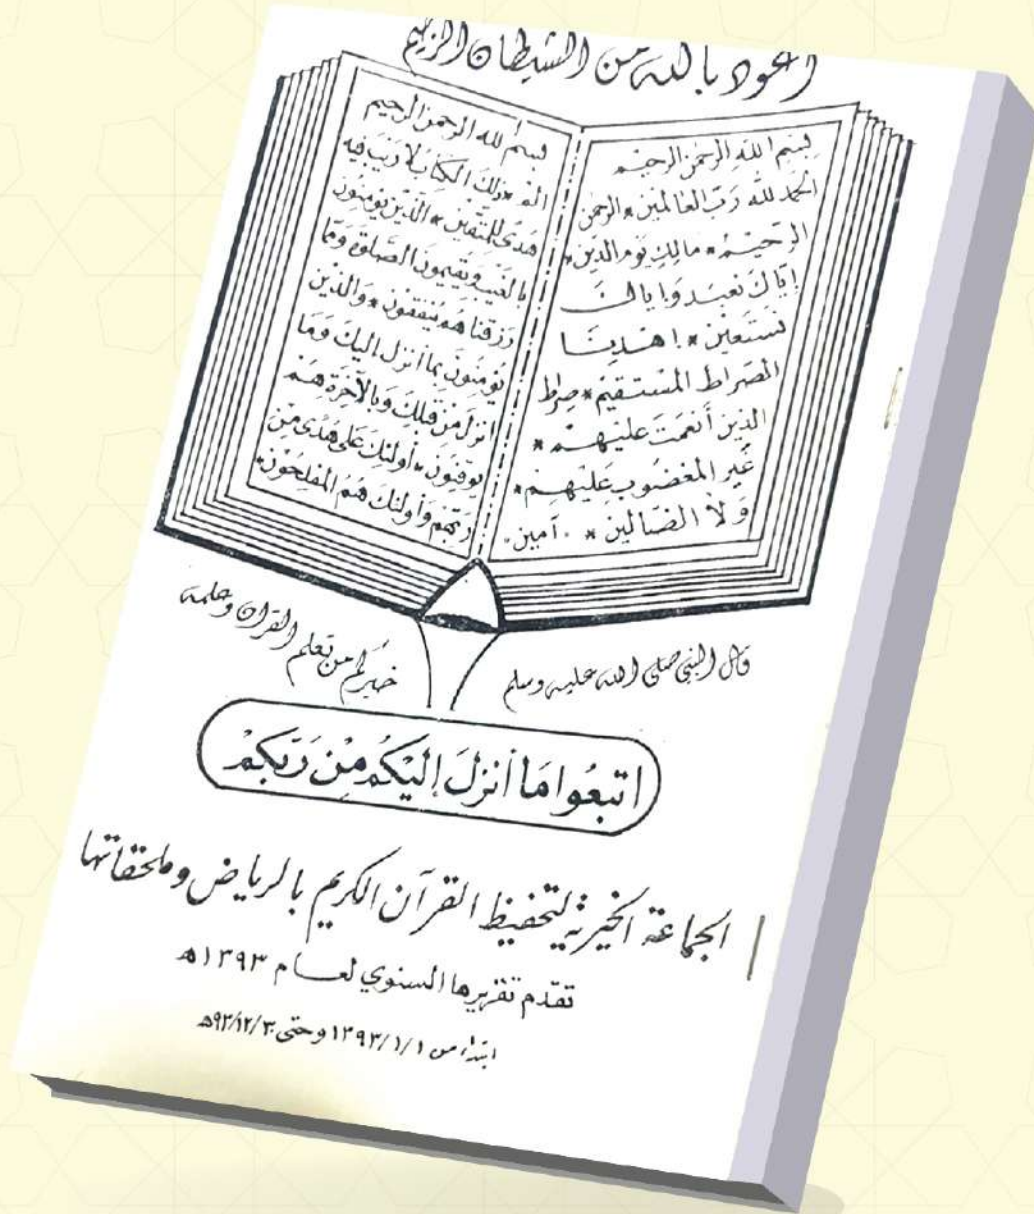 أعوذ بالله من الشيطان الرجيم
بسم الله الرحمن الرحيم
الحمد لله رب العالمين * الرحمن
الرحيم * مالك يوم الدين *
إياك نعبد وإياك
نستعين * اهدنا
الصراط المستقيم * صراط
الذين أنعمت عليهم *
غير المغضوب عليهم *
ولا الضالين * . آمين .
بسم الله الرحمن الرحيم
الم * ذلك الكتاب لا ريب فيه
هدى للمتقين * الذين يؤمنون
بالغيب ويقيمون الصلوة ومما
رزقنا هم ينفقون * والذين
يؤمنون بما أنزل اليك وما
انزل من قبلك وبالآخرة هم
يوقنون * أولئك على هدى من
ربهم وأولئك هم المفلحون *
قال النبي صلى الله عليه وسلم
خيركم من تعلم القرآن وعلمه
اتبعُوا مَا أنزلَ إليْكُم مِنْ رَبّكمْ
الجماعة الخيرية لتحفيظ القرآن الكريم بالرياض وملحقاتها
تقدم تقريرها السنوي لعام ١٣٩٣هـ
ابتداء من ١/١/١٣٩٣ وحتى ٩٣/١٢/٣٠هـ